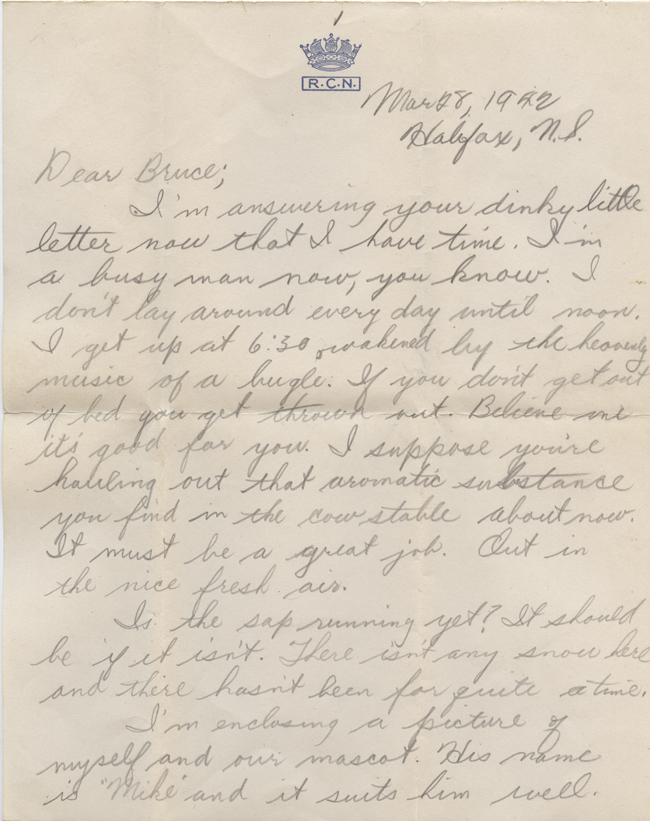 1
R.C.N.
Mar 28, 1942
Halifax, N.S.
Dear Bruce;
I'm answering your dinky little
letter now that I have time. I'm
a busy man now, you know. I
don't lay around every day until noon.
I get up at 6:30, wakened by the heavenly
music of a bugle. If you don't get out
of bed you get thrown out. Believe me
it's good for you. I suppose you're
hauling out that aromatic substance
you find in the cow stable about now.
It must be a great job. Out in
the nice fresh air.
Is the sap running yet? It should
be if it isn't. There isn't any snow here
and there hasn't been for quite a time.
I'm enclosing a picture of
myself and our mascot. His name
is "Mike" and it suits him well.